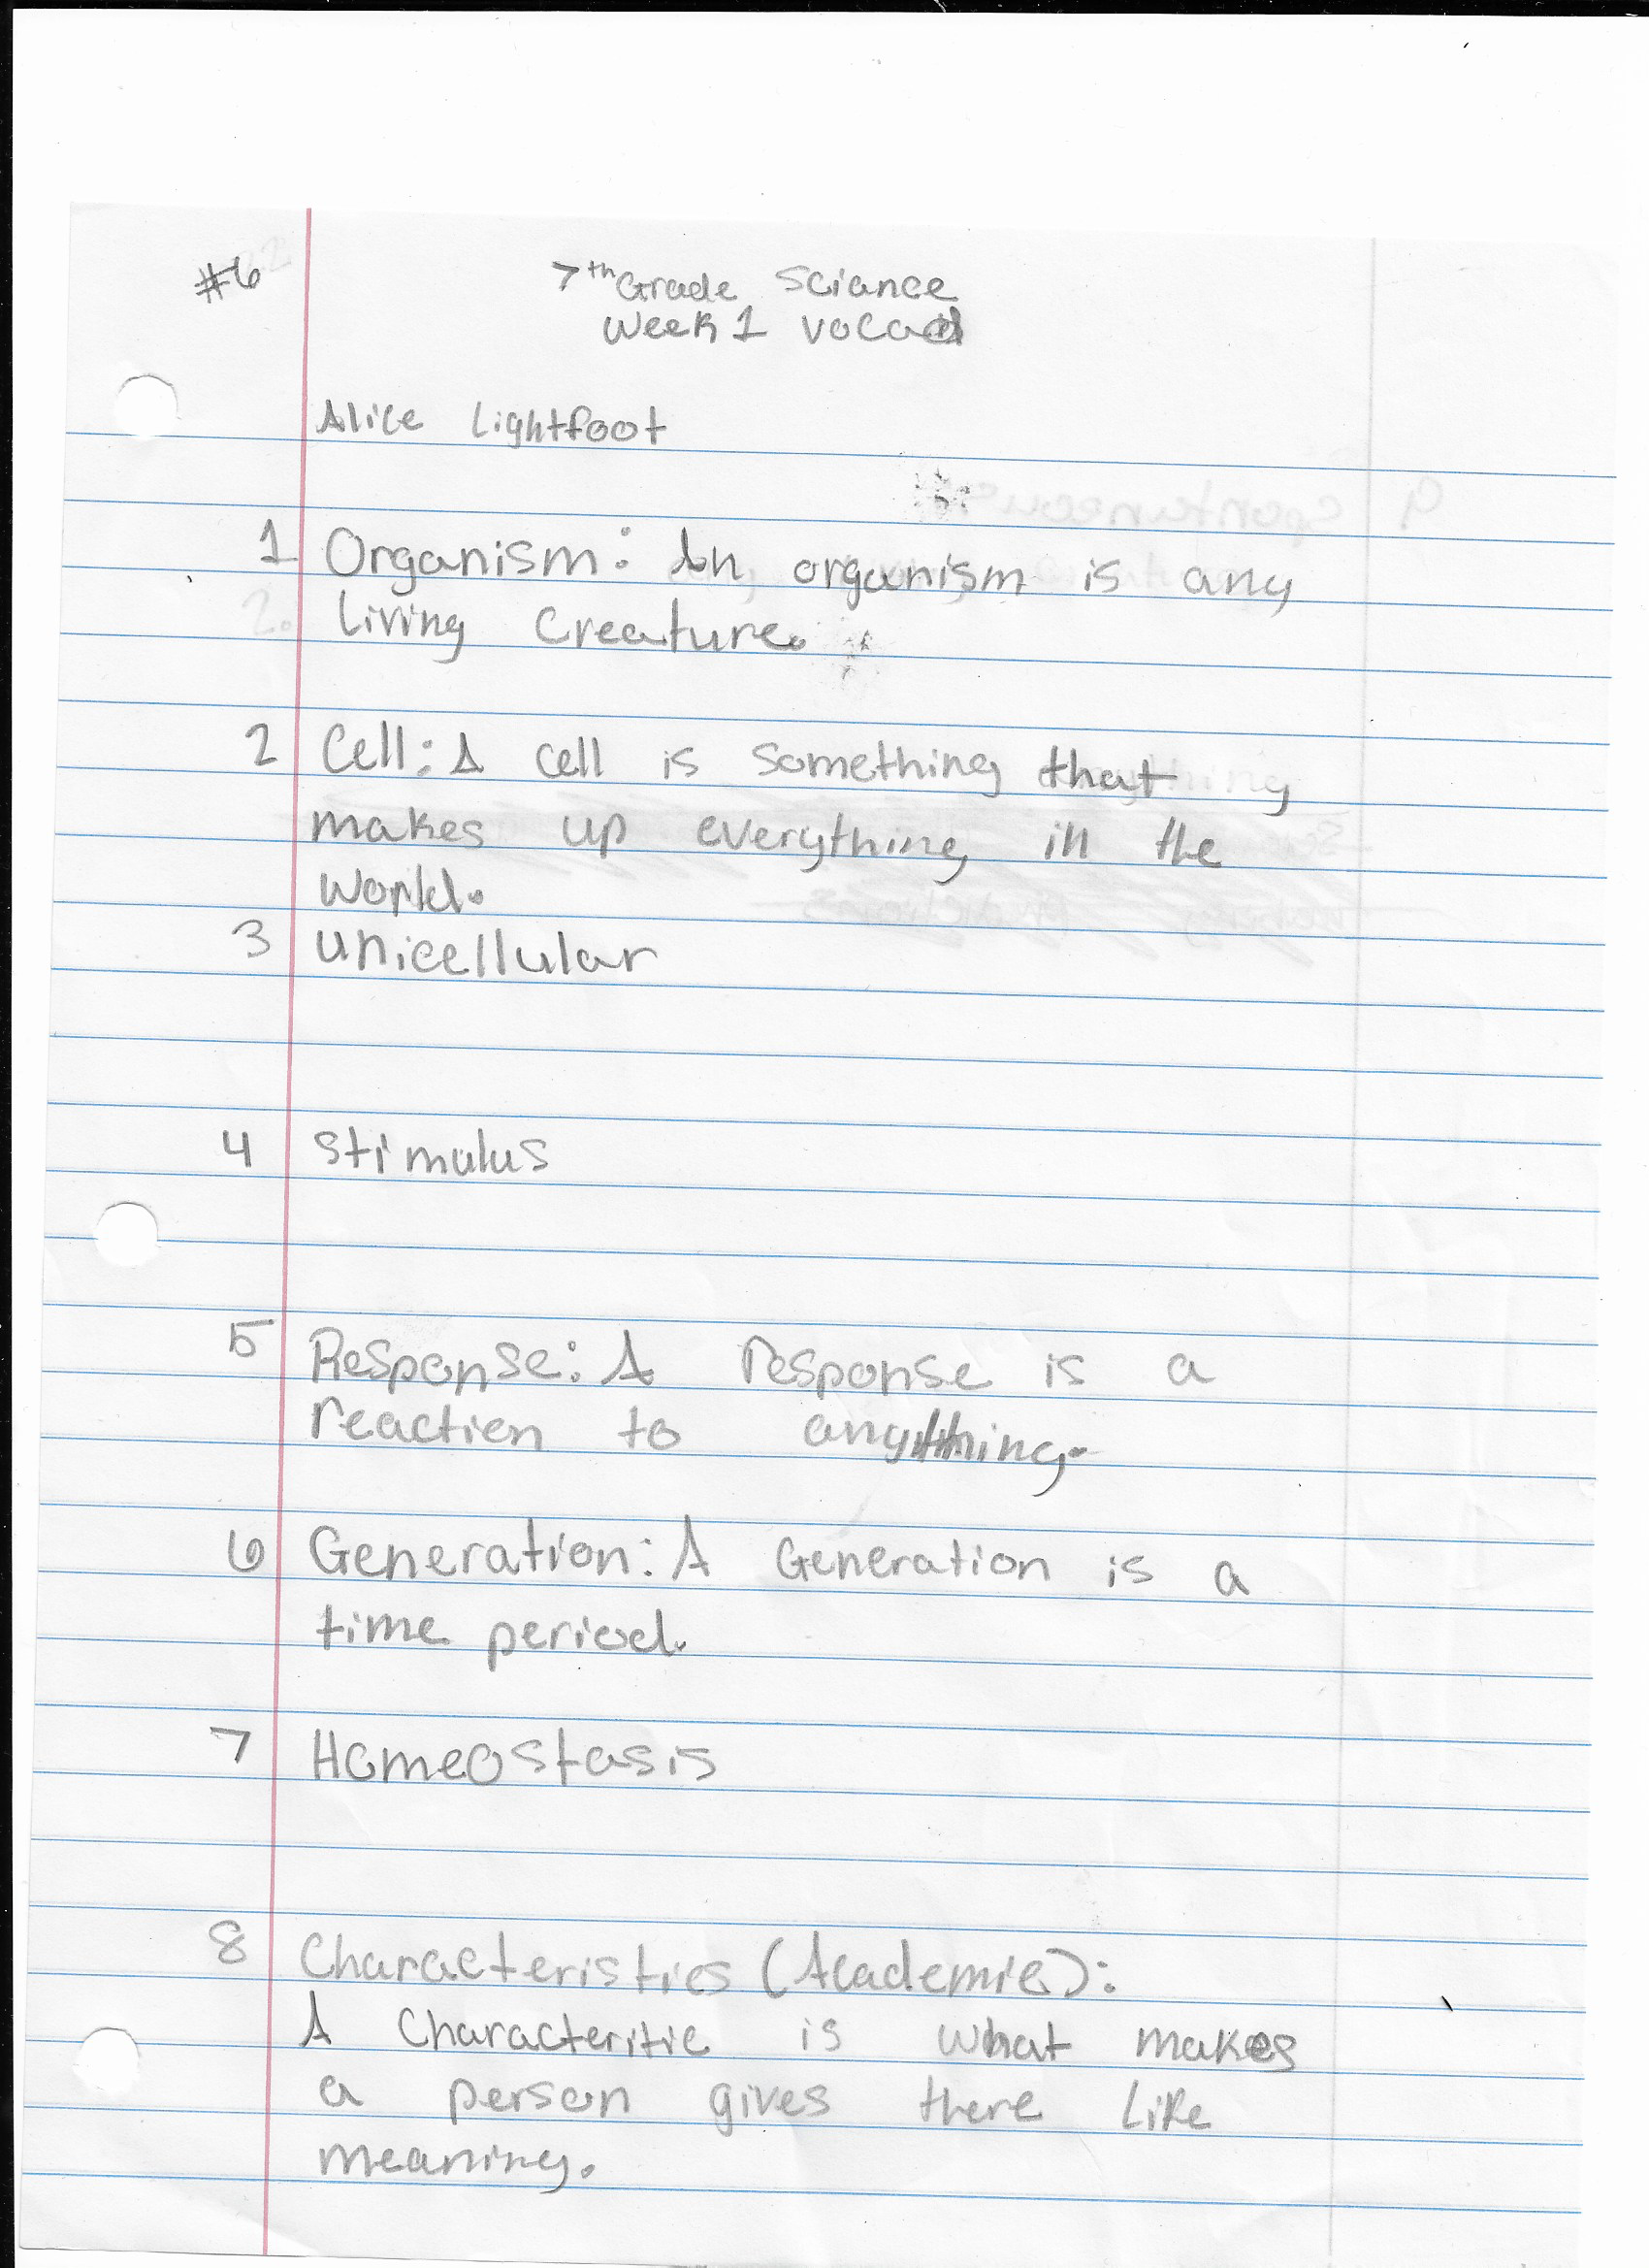 #6
7th Grade Sciance
Week 1 vocad
Alice Lightfoot
1 Organism: An organism is any
living creature.
2 Cell: A cell is something that
makes up everything in the
world.
3 unicellular
4 stimulus
5 Response: A response is a
reaction to anything.
6 Generation: A Generation is a
time period.
7 Homeostasis
8 Characteristics (Academic):
A Characteritic is what makes
a person gives there like
meaning.